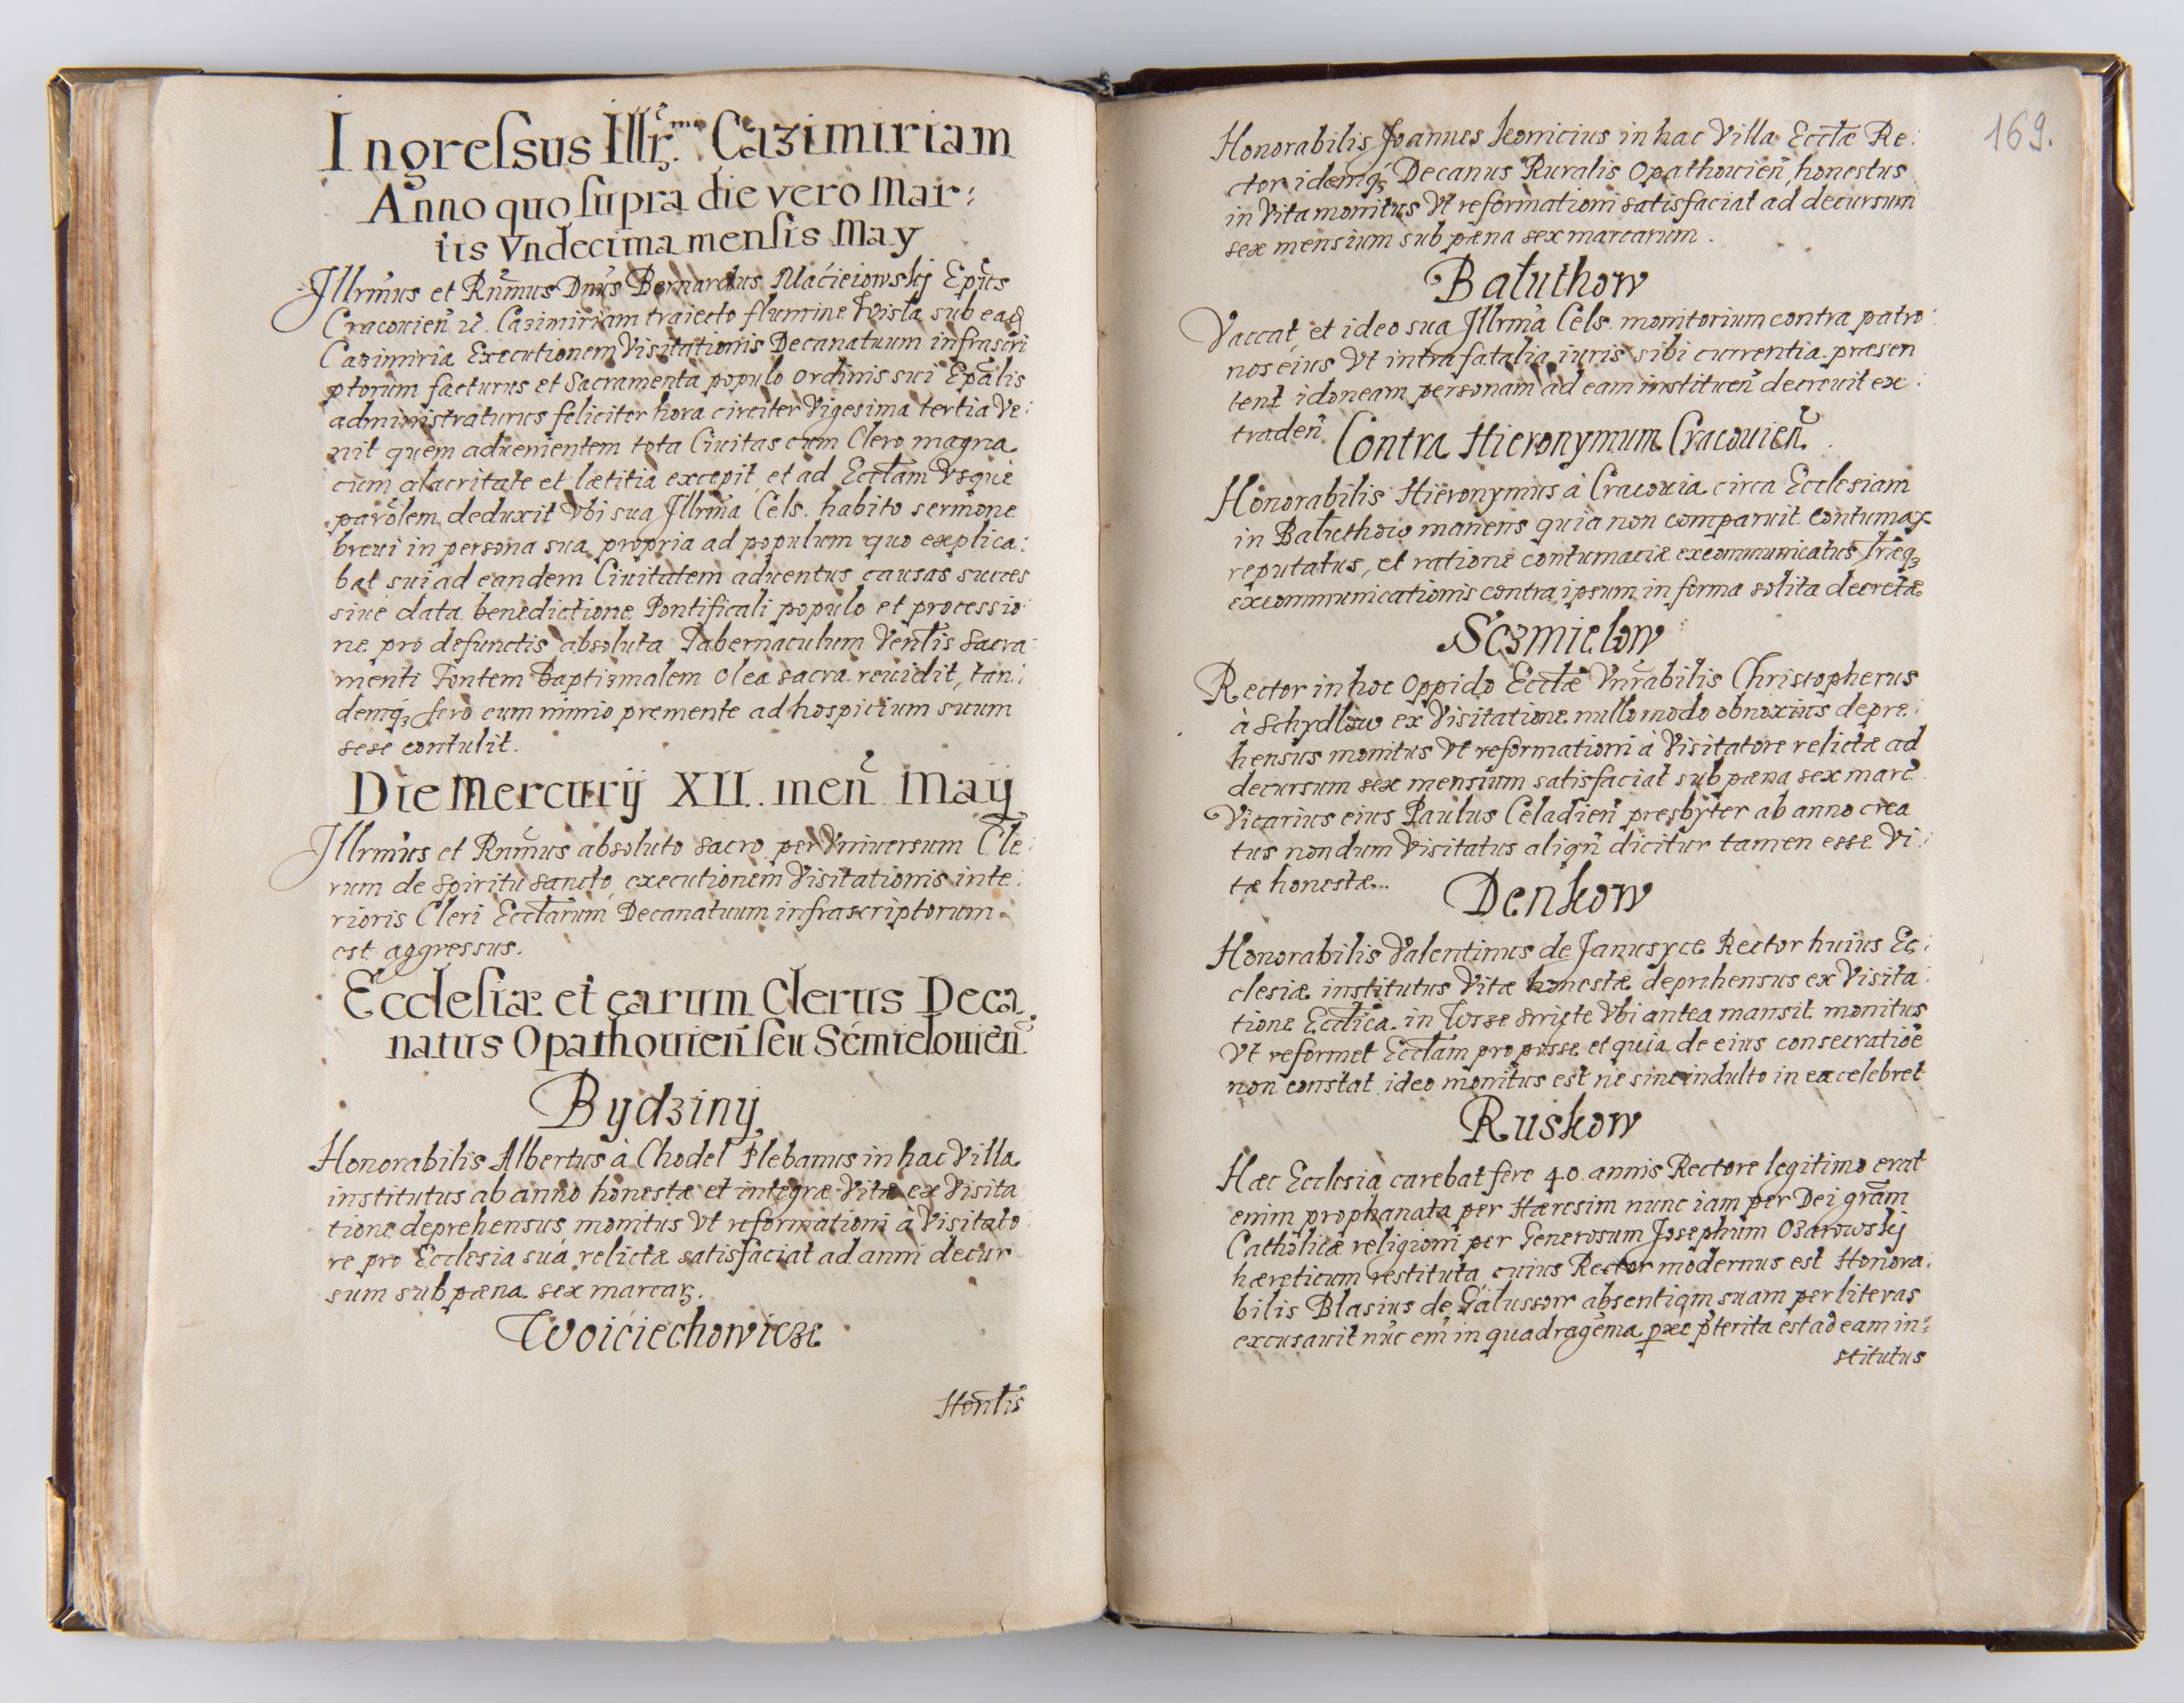 Ingreſsus Illr̃.mi Cazimiriam
Anno quo ſupra die vero Mar:
tis Vndecima menſis May
Jllrm̃us et Rñmus Dnũs Bernardus Macieiowskij Ep̃us
Cracouien̄ &c. Cazimiriam traiecto flumine Wisła sub ead̃
Cazimiria Executionem Visitationis Decanatuum infrascri
ptorum facturus et Sacramenta populo Ordinis sui Ep̃alis
administraturus feliciter hora circiter Vigesima tertia Ve:
nit quem aduenientem tota Ciuitas cum Clero magna
cum alacritate et lætitia excepit et ad Eccl̃am Vsque
parõlem deduxit Vbi sua Jllrm̃a Cels. habito sermone
breui in persona sua propria ad populum quo explica:
bat sui ad eandem Ciuitatem aduentus causas succes
siue data benedictione Pontificali populo et processio
ne pro defunctis absoluta Tabernaculum Ven̄lis Sacra:
menti Fontem Baptizmalem Olea sacra reuidit, tan:
demq́ꝫ sero eum nimio premente ad hospicium suum
sese contulit.
Die Mercurij XII. men̄ Maij
Jllrm̃us et Rñmus absoluto Sacro per Vniuersum Cle:
rum de Spiritu Sancto executionem Visitationis inte:
rioris Cleri Eccl̃arum Decanatuum infrascriptorum
est aggressus.
Eccleſiæ et earum Clerus Deca
natus Opathouien̄ ſeu Sćmielouien̄
Bydziny
Honorabilis Albertus à Chodel Plebanus in hac Villa
institutus ab anno honestæ et integræ Vitæ ex Visita
tione deprehensus, monitus Vt reformationi à Visitato
re pro Ecclesia suá relictæ satisfaciat ad anni decur
sum sub pæna sex marcaꝝ.
Woićiechowicze
Hon̄lis
169.
Honorabilis Joannes Konicius in hac Villa Eccl̃æ Re:
ctor idemq́ꝫ Decanus Ruralis Opathouien̄, honestus
in Vita monitus Vt reformationi satisfaciat ad decursum
sex mensium sub pæna sex marcarum.
Bałuthow
Vaccat et ideo sua Jllrm̃a Cels. monitorium contra patro:
nos eius Vt intra fatalia iuris sibi currentia præsen
tent idoneam personam ad eam instituen̄ decreuit ex:
traden̄
Contra Hieronymum Cracouien̄.
Honorabilis Hieronymus à Cracouia circa Ecclesiam
in Bałuthow manens quia non comparuit contumax
reputatus, et ratione contumaciæ excommunicatus l̃ræq́ꝫ
excommunicationis contra ipsum in forma solita decretæ
Sczmielow
Rector in hoc Oppido Eccl̃æ Vnr̃abilis Christopherus
à Schydlow ex Visitatione nullo modo obnoxius depre:
hensus monitus Vt reformationi à Visitatore relictæ ad
decursum sex mensium satisfaciat sub pæna sex marc̃.
Vicarius eius Paulus Celadien̄ presbyter ab anno crea
tus nondum Visitatus aliqñ dicitur tamen esse Vi:
tæ honestæ..
Denkow
Honorabilis Valentinus de Janusyce Rector huius Ec:
clesiæ institutus Vitæ honestæ deprehensus ex Visita
tione Eccl̃ica in Vbi antea mansit monitus
Vt reformet Eccl̃am pro posse et quia de eius consecratiõe
non constat ideo monitus est ne sine indulto in ea celebret
Ruskow
Hæc Ecclesia carebat fere 40. annis Rectore legitimo erat
enim prophanata per Hæresim nunc iam per Dei grãm
Catholicæ religioni per Generosum Josephum Ozarowskij
hæreticum restituta cuius Rector modernus est Honora:
bilis Blasius de Gałussow absentiam suam per literas
excusauit nũc em̃ in quadragẽma ꝓxe p̃terita est ad eam in:
stitutus